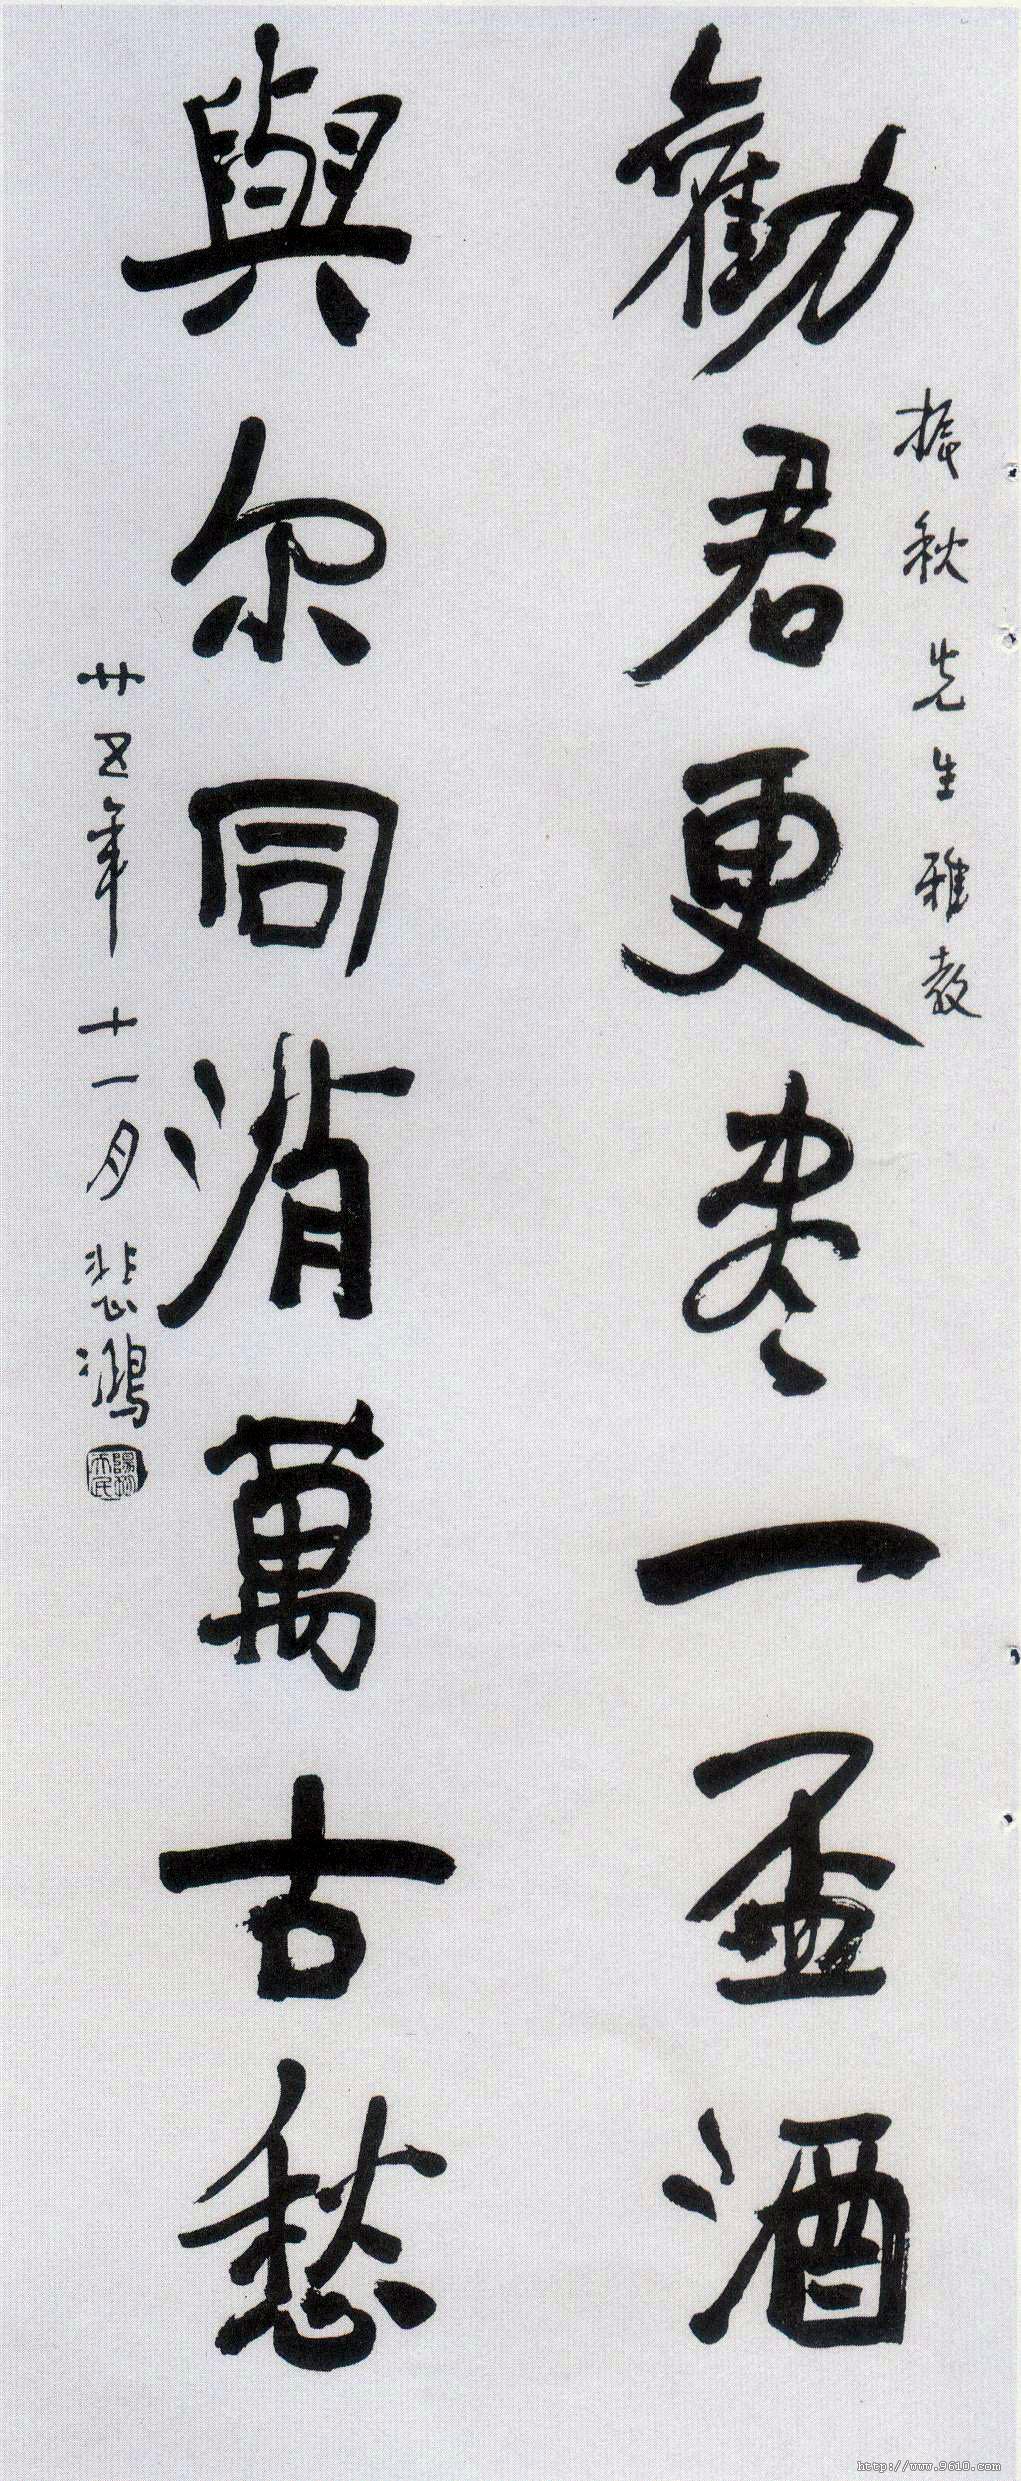 振秋先生雅教
勸君更尽一盃酒
與尔同消萬古愁
廿五年十一月悲鴻
http://www.9610.com